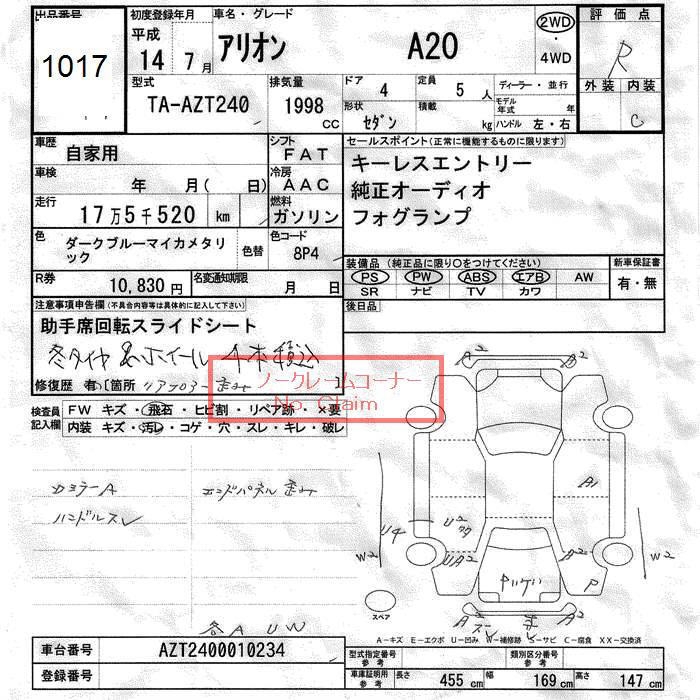 出品番号
1017
初度登録年月
平成
14 7 月
車名・グレード
アリオン A20
2WD
・
4WD
評価点
R
外装 内装
C
型式
TA-AZT240
排気量
1998
CC
ドア
4
定員
5 人
形状
セダン
積載
kg
ディーラー・並行
モデル
年式 年
ハンドル 左・右
車歴
自家用
シフト
FAT
車検
年 月( 日)
冷房
AAC
走行
17万5千520 km
燃料
ガソリン
色
ダークブルーマイカメタリ
ック
色替
色コード
8P4
R券
10,830円
名変通知期限
月 日
セールスポイント(正常に機能するものに限ります)
キーレスエントリー
純正オーディオ
フォグランプ
装備品(純正品に限り〇をつけてください)
PS PW ABS エアB AW
SR ナビ TV カワ
新車保証書
有・無
後日品
注意事項申告欄(不具合内容等は具体的に記入して下さい)
助手席回転スライドシート
冬タイヤ&ホイール 4本積込
修復歴 有〔箇所 リアフロアー歪み 〕
ノークレームコーナー
No Claim
検査員
記入欄
FW キズ・飛石・ヒビ割・リペア跡・×要
内装 キズ・汚レ・コゲ・穴・スレ・キレ・破レ
カミラーA
エンドパネル歪み
ハンドルスレ
各A UW
A2
A2
A1
U2
U4
UA2
A2
W2
W2
P
A2
スペア
A-キズ E-エクボ U-凹み W-補修跡 S-サビ C-腐食 XX-交換済
車台番号
AZT2400010234
登録番号
型式指定番号
参考
類別区分番号
参考
車庫証明用
参考
長さ
455 cm
幅
169 cm
高さ
147 cm